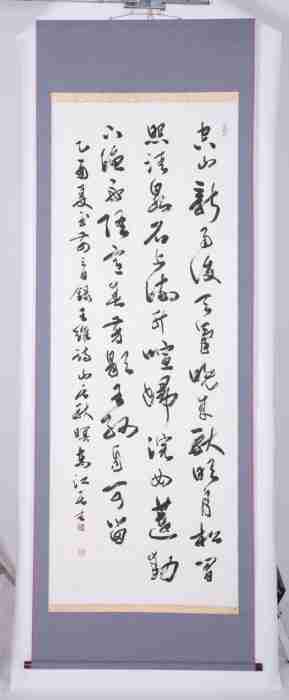 空山新雨後天氣晚來秋明月松間
照清泉石上流竹喧歸浣女蓮動
下漁舟隨意春芳歇王孫自可留
乙酉夏 錄王維詩山居秋暝